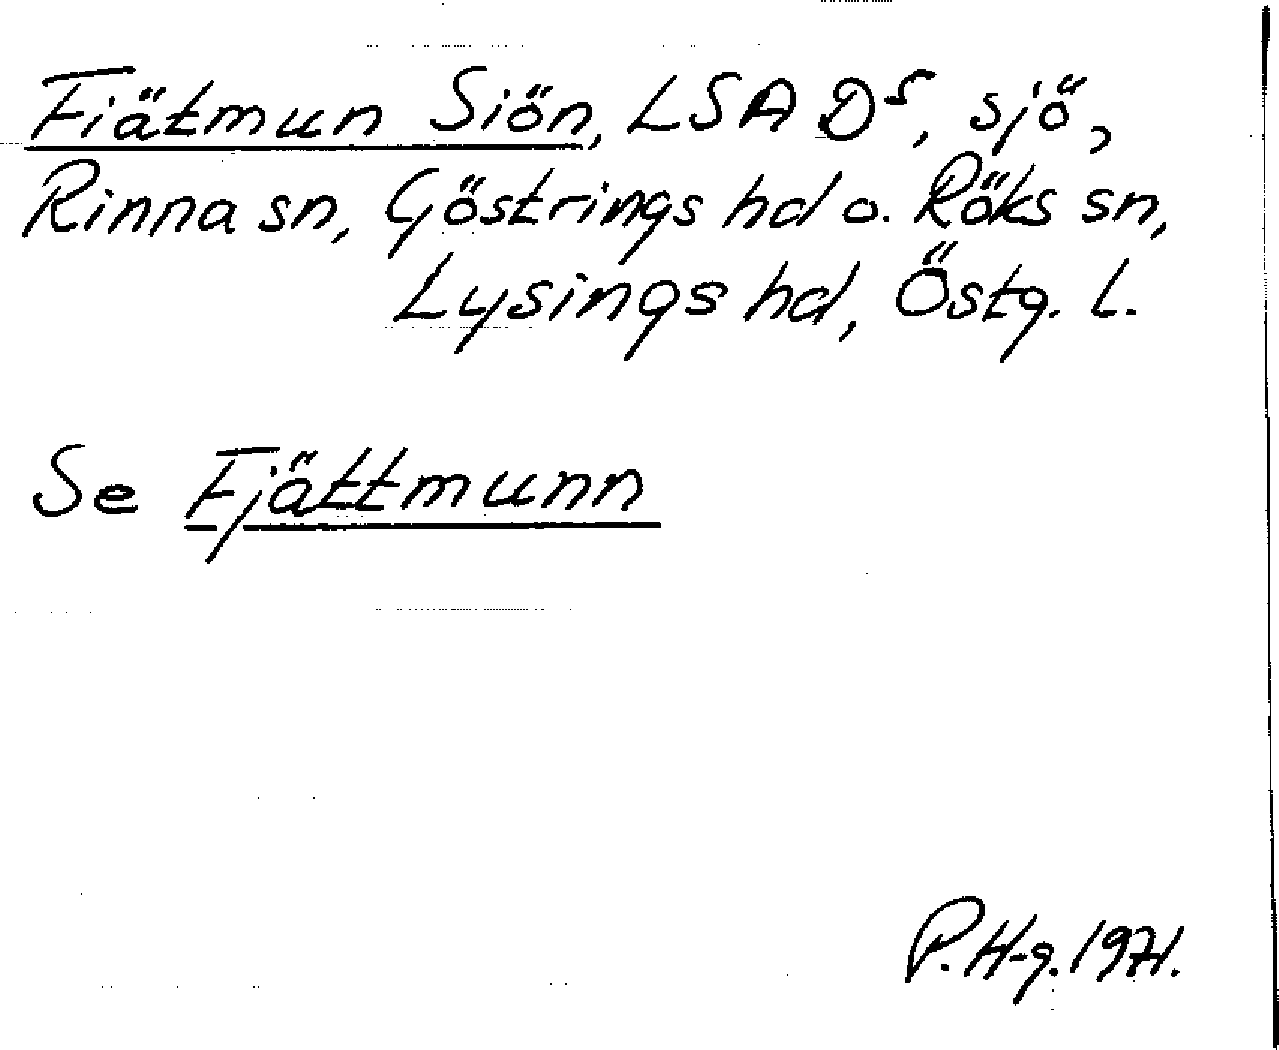 Fiätmun Siön, LSA Dˢ, sjö,
Rinna sn, Göstrings hd o. Röks sn,
Lysings hd, Östg. l.
Se Fjättmunn
P. H-g. 1971.